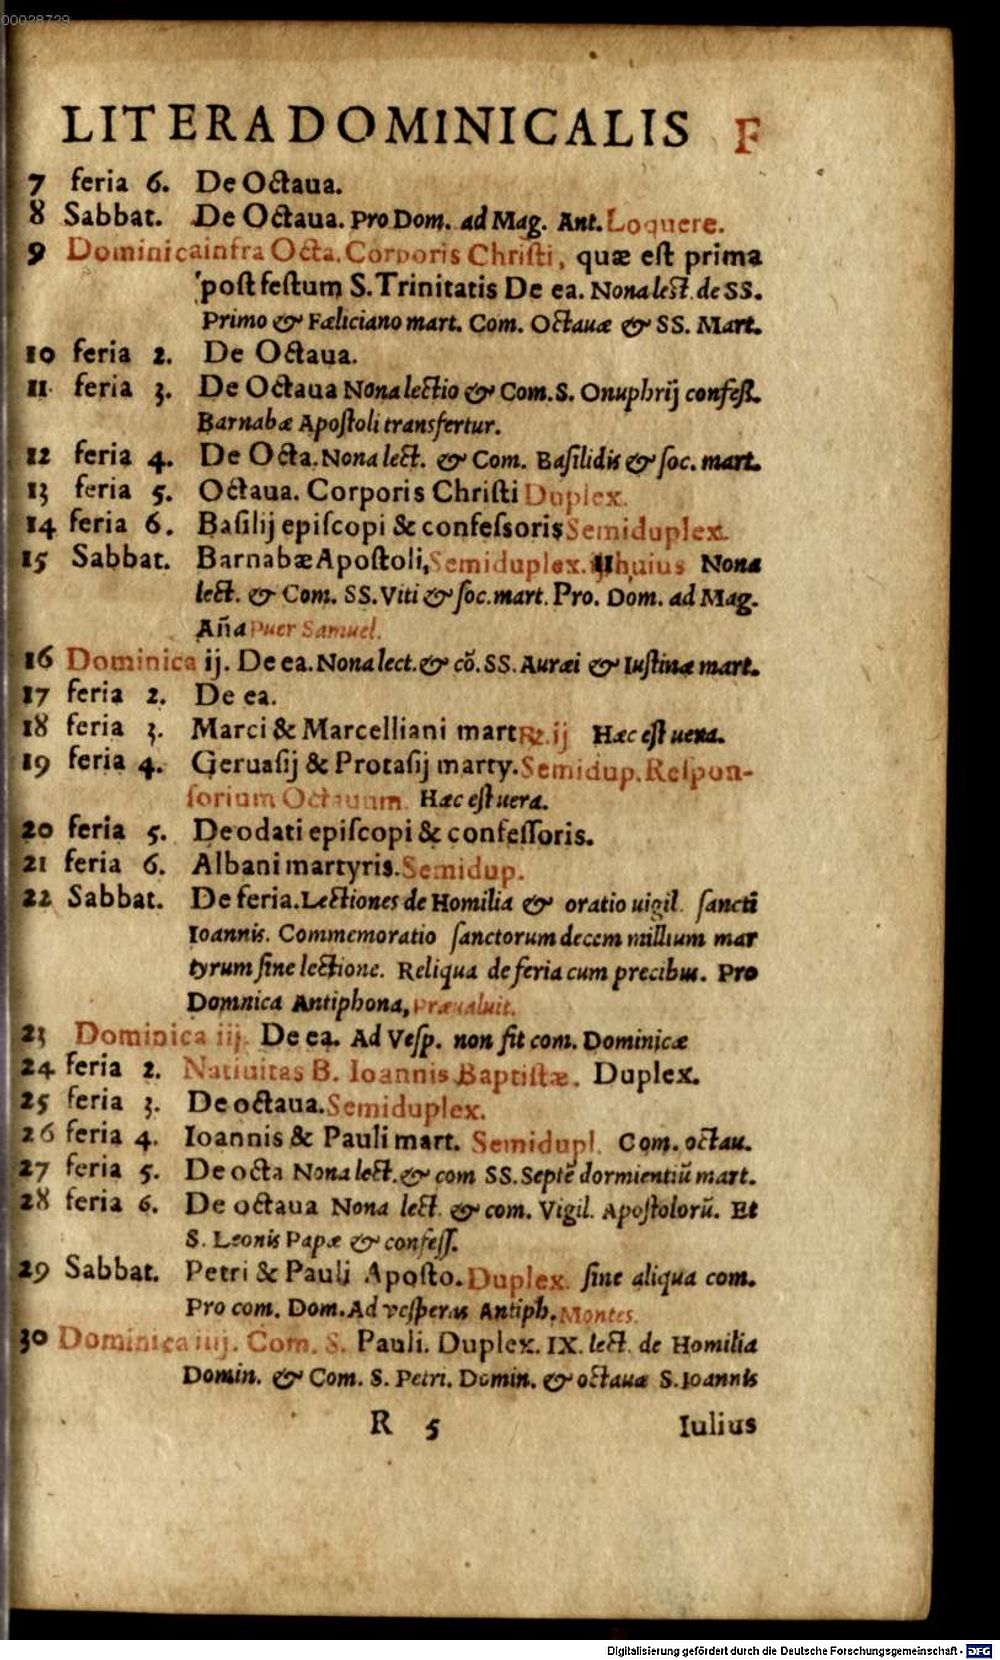 00028729
LITERA DOMINICALIS F
7 feria 6. De Octaua.
8 Sabbat. De Octaua. Pro Dom. ad Mag. Ant. Loquere.
9 Dominica infra Octa. Corporis Chriſti, quæ eſt prima
poſt feſtum S. Trinitatis De ea. Nona lect. de SS.
Primo & Fæliciano mart. Com. Octauæ & SS. Mart.
10 feria 2. De Octaua.
11 feria 3. De Octaua Nona lectio & Com. S. Onuphrij confeſſ.
Barnabæ Apoſtoli transfertur.
12 feria 4. De Octa. Nona lect. & Com. Baſilidis & ſoc. mart.
13 feria 5. Octaua. Corporis Chriſti Duplex.
14 feria 6. Baſilij epiſcopi & confeſsoris Semiduplex.
15 Sabbat. Barnabæ Apoſtoli, Semiduplex. huius Nona
lect. & Com. SS. Viti & ſoc. mart. Pro. Dom. ad Mag.
Aña Puer Samuel.
16 Dominica ij. De ea. Nona lect. & cõ. SS. Auræi & Iuſtinæ mart.
17 feria 2. De ea.
18 feria 3. Marci & Marcelliani mart ℞. ij Hæc eſt uera.
19 feria 4. Geruaſij & Protaſij marty. Semidup. Reſpon-
ſorium Octauum. Hæc eſt uera.
20 feria 5. Deodati epiſcopi & confeſſoris.
21 feria 6. Albani martyris. Semidup.
22 Sabbat. De feria. Lectiones de Homilia & oratio uigil. ſancti
Ioannis. Commemoratio ſanctorum decem millium mar
tyrum ſine lectione. Reliqua de feria cum precibus. Pro
Domnica Antiphona, præualuit.
23 Dominica iij. De ea. Ad Veſp. non fit com. Dominicæ
24 feria 2. Natiuitas B. Ioannis Baptiſtæ. Duplex.
25 feria 3. De octaua. Semiduplex.
26 feria 4. Ioannis & Pauli mart. Semidupl. Com. octau.
27 feria 5. De octa Nona lect. & com SS. Septẽ dormientiũ mart.
28 feria 6. De octaua Nona lect. & com. Vigil. Apoſtolorũ. Et
S. Leonis Papæ & confeſſ.
29 Sabbat. Petri & Pauli Apoſto. Duplex. ſine aliqua com.
Pro com. Dom. Ad veſperas Antiph. Montes.
30 Dominica iiij. Com. S. Pauli. Duplex. IX. lect. de Homilia
Domin. & Com. S. Petri. Domin. & octauæ S. Ioannis
R 5 Iulius
Digitalisierung gefördert durch die Deutsche Forschungsgemeinschaft - DFG